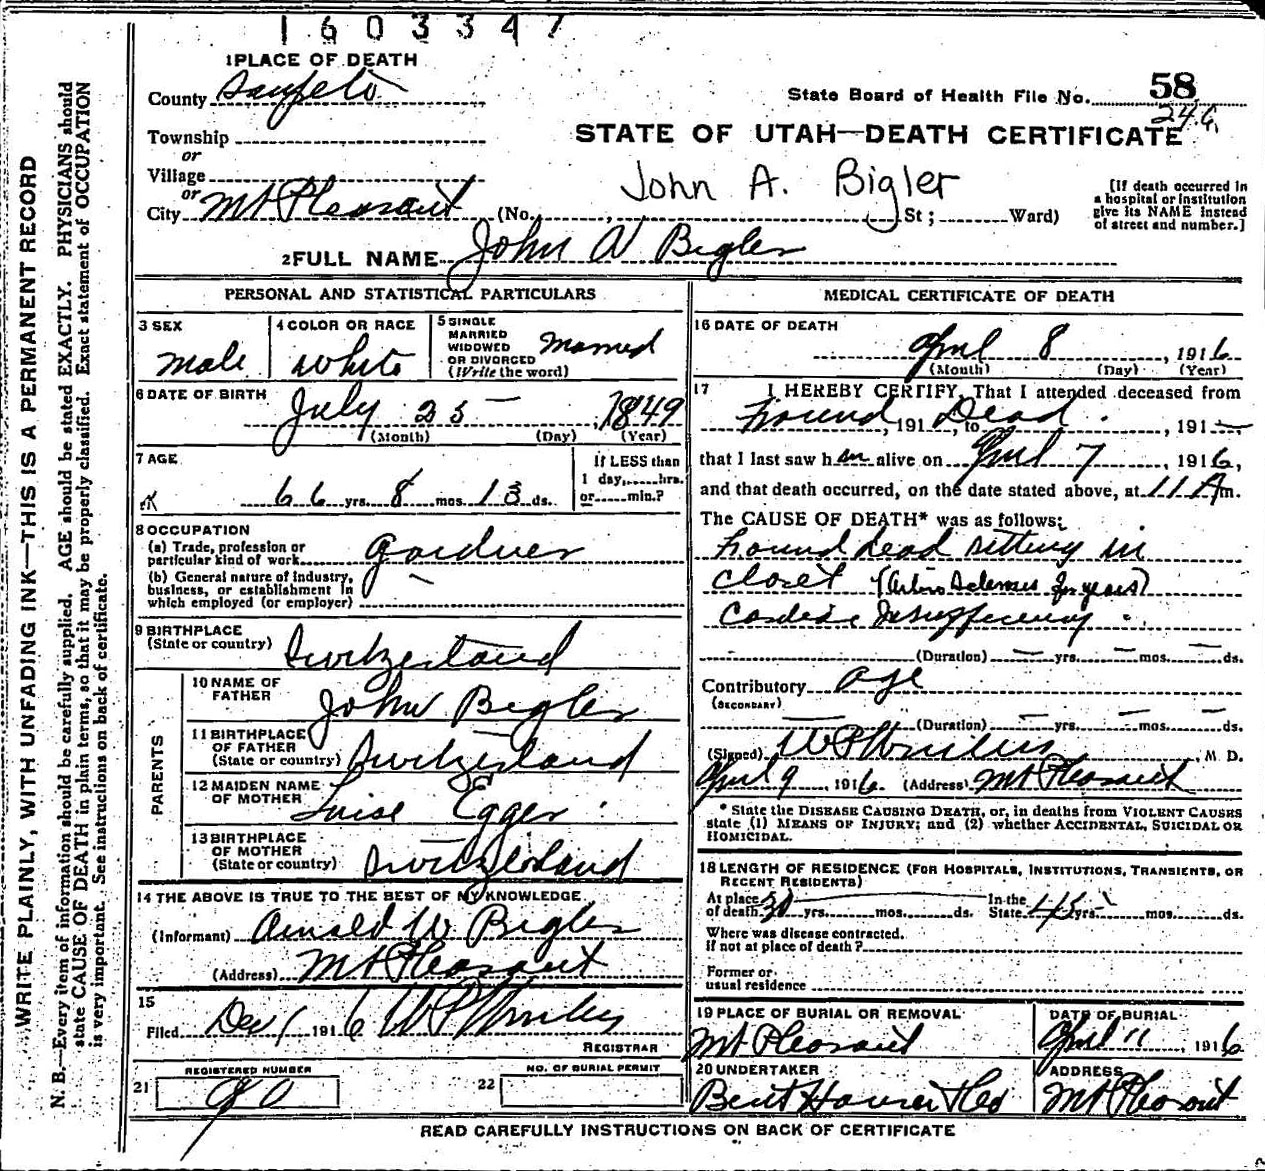 1603347
1 PLACE OF DEATH
County Sanpete
State Board of Health File No. 58
246
Township
or
Village
or
City Mt Pleasant
STATE OF UTAH—DEATH CERTIFICATE
John A. Bigler
(No. St; Ward)
[If death occurred in
a hospital or institution
give its NAME instead
of street and number.]
2 FULL NAME John W Bigler
PERSONAL AND STATISTICAL PARTICULARS
3 SEX
Male
4 COLOR OR RACE
White
5 SINGLE
MARRIED
WIDOWED
OR DIVORCED
(Write the word)
Married
6 DATE OF BIRTH
July 25 — 1849
(Month) (Day) (Year)
7 AGE
66 yrs. 8 mos. 13 ds.
If LESS than
1 day, hrs.
or min.?
8 OCCUPATION
(a) Trade, profession or
particular kind of work Gardner
(b) General nature of industry,
business, or establishment in
which employed (or employer)
9 BIRTHPLACE
(State or country) Switzerland
PARENTS
10 NAME OF
FATHER John Bigler
11 BIRTHPLACE
OF FATHER
(State or country) Switzerland
12 MAIDEN NAME
OF MOTHER Luise Egger
13 BIRTHPLACE
OF MOTHER
(State or country) Switzerland
14 THE ABOVE IS TRUE TO THE BEST OF MY KNOWLEDGE
(Informant) Arnold W Bigler
(Address) Mt Pleasant
15
Filed Dec 1 1916
REGISTRAR
REGISTERED NUMBER
21 90
NO. OF BURIAL PERMIT
22
MEDICAL CERTIFICATE OF DEATH
16 DATE OF DEATH
April 8, 1916
(Month) (Day) (Year)
17 I HEREBY CERTIFY, That I attended deceased from
Found, 191 Dead, to , 191
that I last saw him alive on April 7, 1916,
and that death occurred, on the date stated above, at 11 A m.
The CAUSE OF DEATH* was as follows:
Found dead sitting in
closet (Arterio Sclerosis for years)
Cardiac Insufficiency
(Duration) — yrs. — mos. — ds.
Contributory Age
(SECONDARY)
(Duration) — yrs. — mos. — ds.
(Signed) M D.
April 9 1916 (Address) Mt Pleasant
* State the DISEASE CAUSING DEATH, or, in deaths from VIOLENT CAUSES
state (1) MEANS OF INJURY; and (2) whether ACCIDENTAL, SUICIDAL OR
HOMICIDAL.
18 LENGTH OF RESIDENCE (FOR HOSPITALS, INSTITUTIONS, TRANSIENTS, OR
RECENT RESIDENTS)
At place
of death 30 yrs. mos. ds.
In the
State 45 yrs. mos. ds.
Where was disease contracted.
if not at place of death?
Former or
usual residence
19 PLACE OF BURIAL OR REMOVAL
Mt Pleasant
DATE OF BURIAL
April 11, 1916
20 UNDERTAKER
ADDRESS
Mt Pleasant
READ CAREFULLY INSTRUCTIONS ON BACK OF CERTIFICATE
WRITE PLAINLY, WITH UNFADING INK—THIS IS A PERMANENT RECORD
N. B.—Every item of information should be carefully supplied. AGE should be stated EXACTLY. PHYSICIANS should
state CAUSE OF DEATH in plain terms, so that it may be properly classified. Exact statement of OCCUPATION
is very important. See instructions on back of certificate.